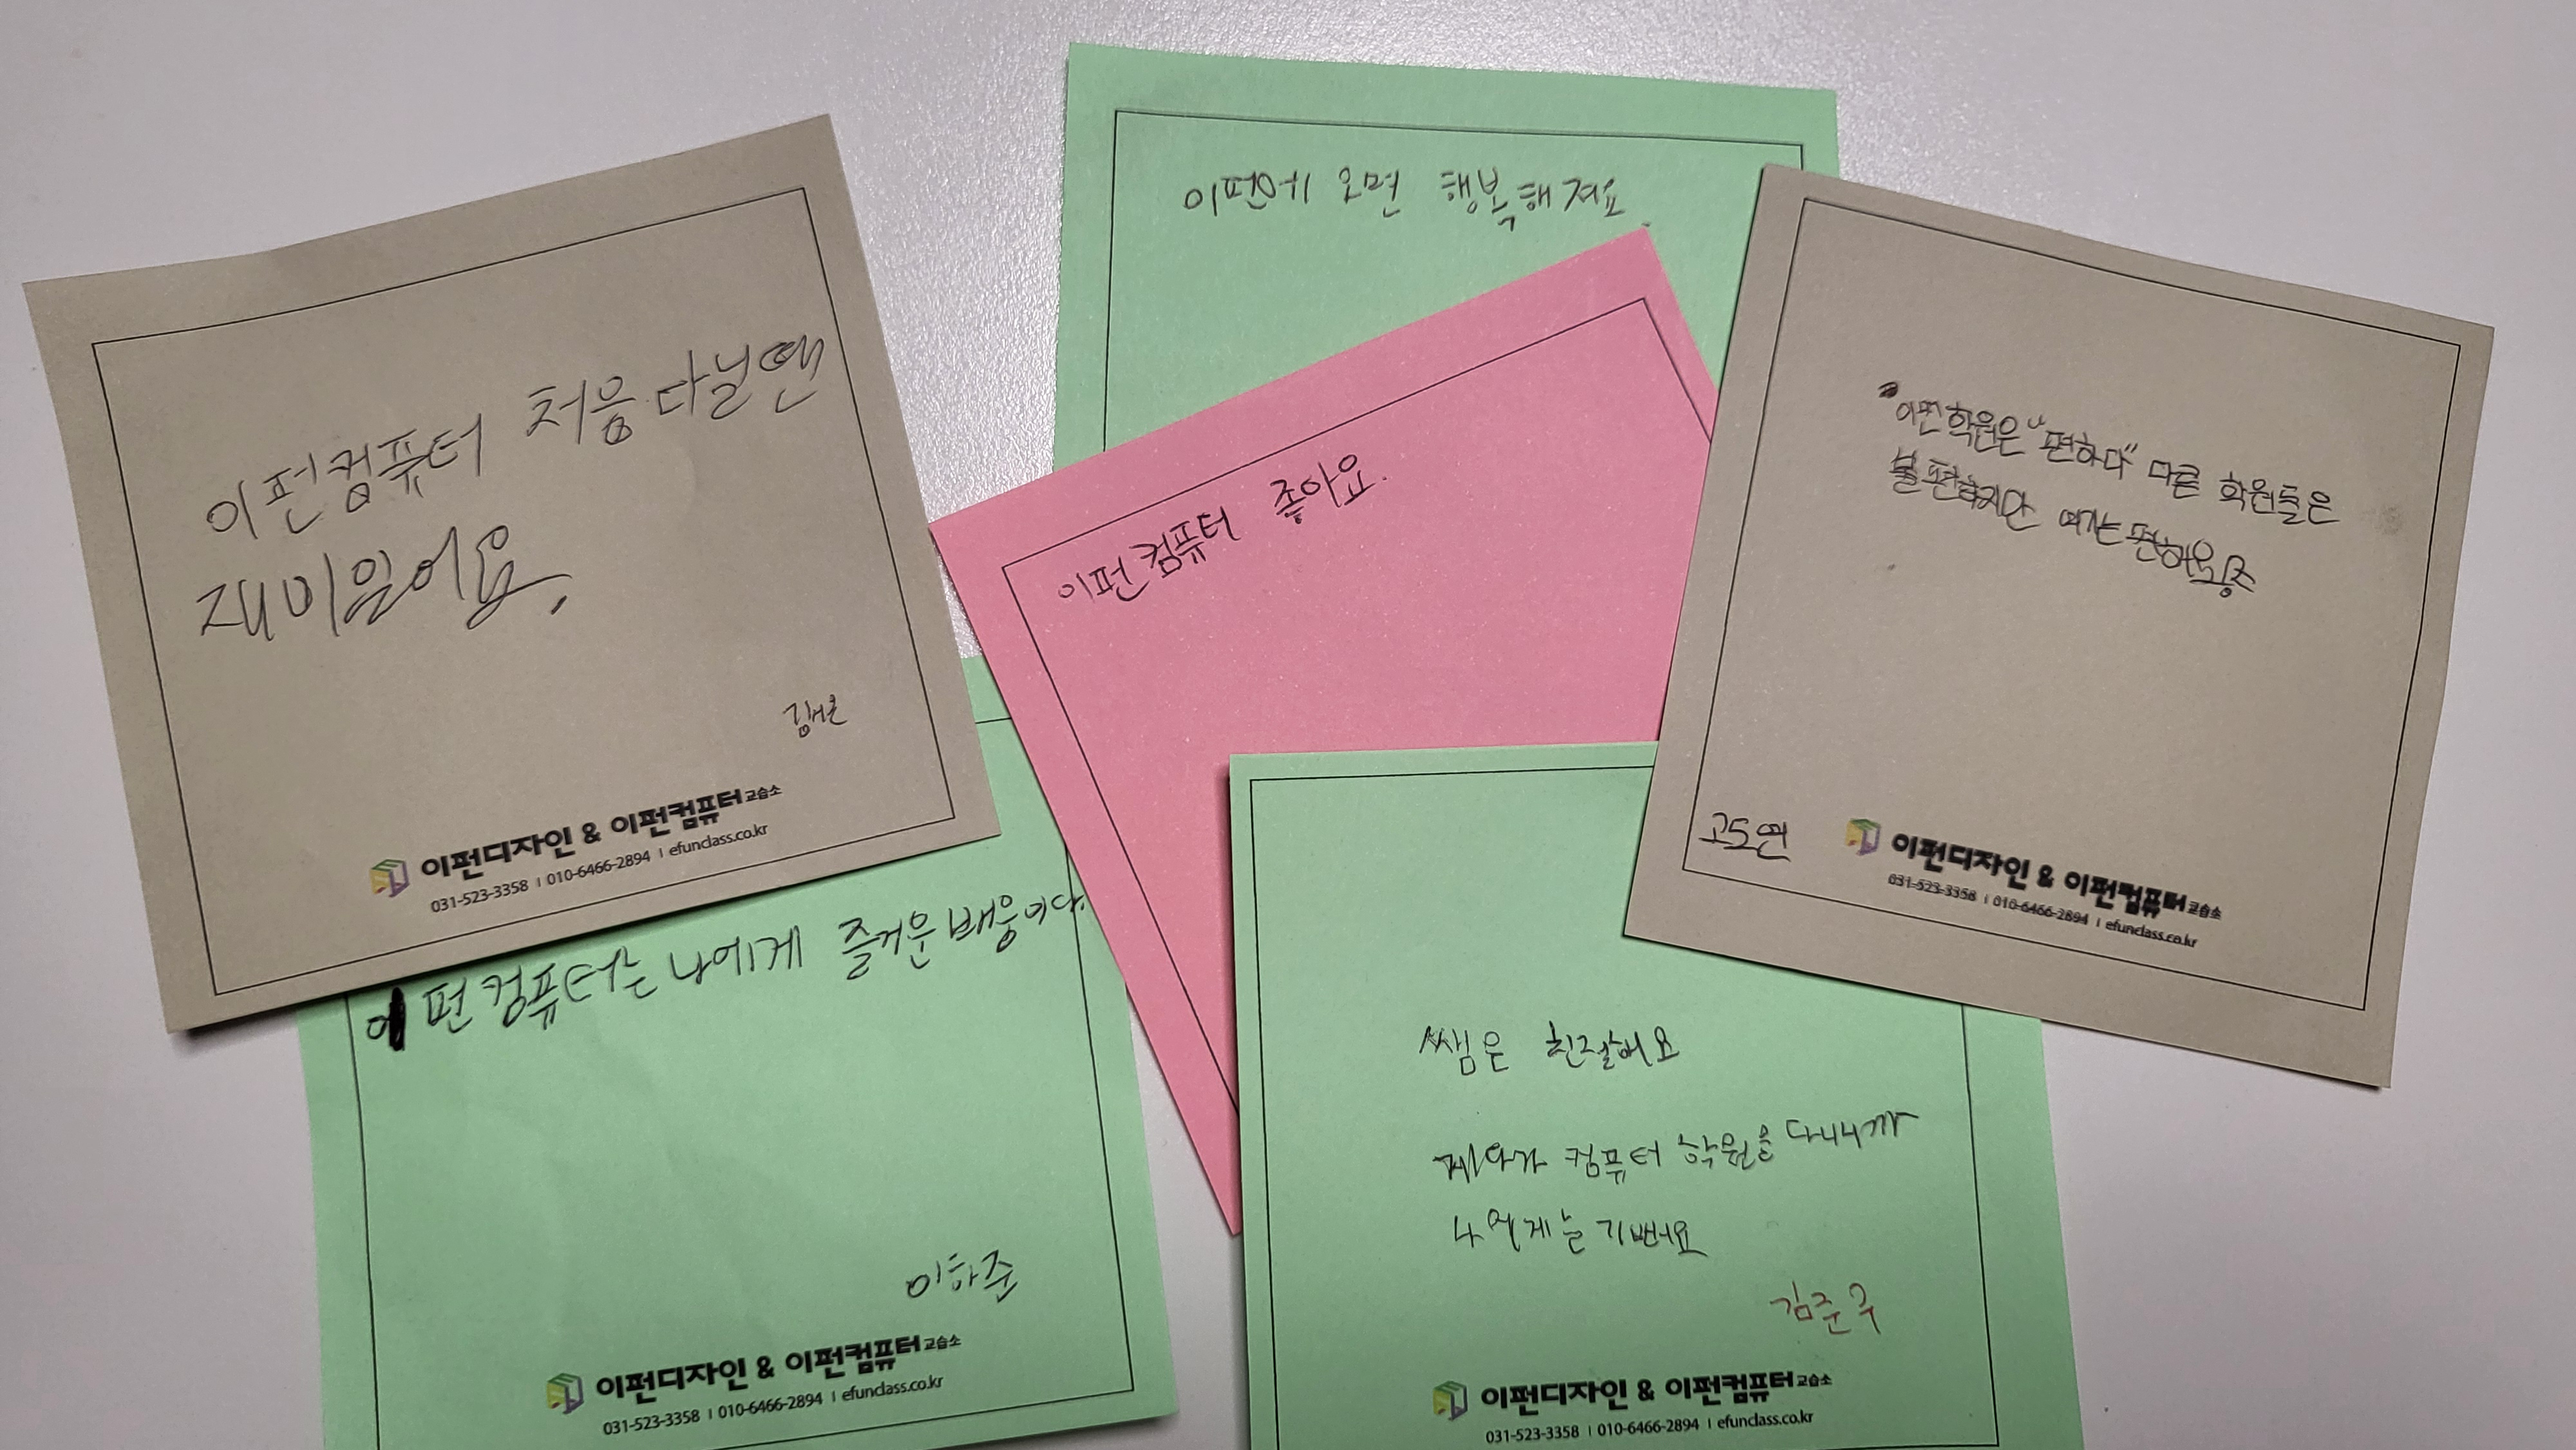 이펀컴퓨터 처음다닐땐
재미있어요.
이펀디자인 & 이펀컴퓨터교습소
031-523-3358 | 010-6466-2894 | efunclass.co.kr
이펀에 오면 행복해져요.
이펀컴퓨터 좋아요.
이펀학원은 "편하다" 다른 학원들은
불편하지만 여기는 편해요
고도연
이펀디자인 & 이펀컴퓨터교습소
031-523-3358 | 010-6466-2894 | efunclass.co.kr
이펀컴퓨터는 나에게 즐거운배움이다.
이하준
이펀디자인 & 이펀컴퓨터교습소
031-523-3358 | 010-6466-2894 | efunclass.co.kr
쌤은 친절해요
컴퓨터 학원을 다니니까
기뻐요
김준우
이펀디자인 & 이펀컴퓨터교습소
031-523-3358 | 010-6466-2894 | efunclass.co.kr